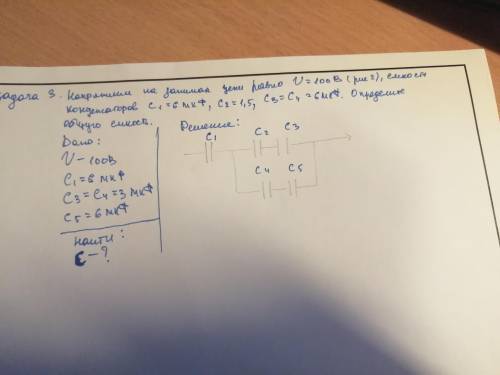 Задача 3. Напряжение на зажимах цепи равно V = 100В (рис 2), емкость
конденсаторов C1 = 6 мкФ, C2 = 1,5, C3 = C4 = 6 мкФ. Определите
общую емкость.
Дано: Решение:
V - 100В
C1 = 6 мкФ
C3 = C4 = 3 мкФ
C5 = 6 мкФ
Найти:
C - ?
C1 C2 C3
C4 C5